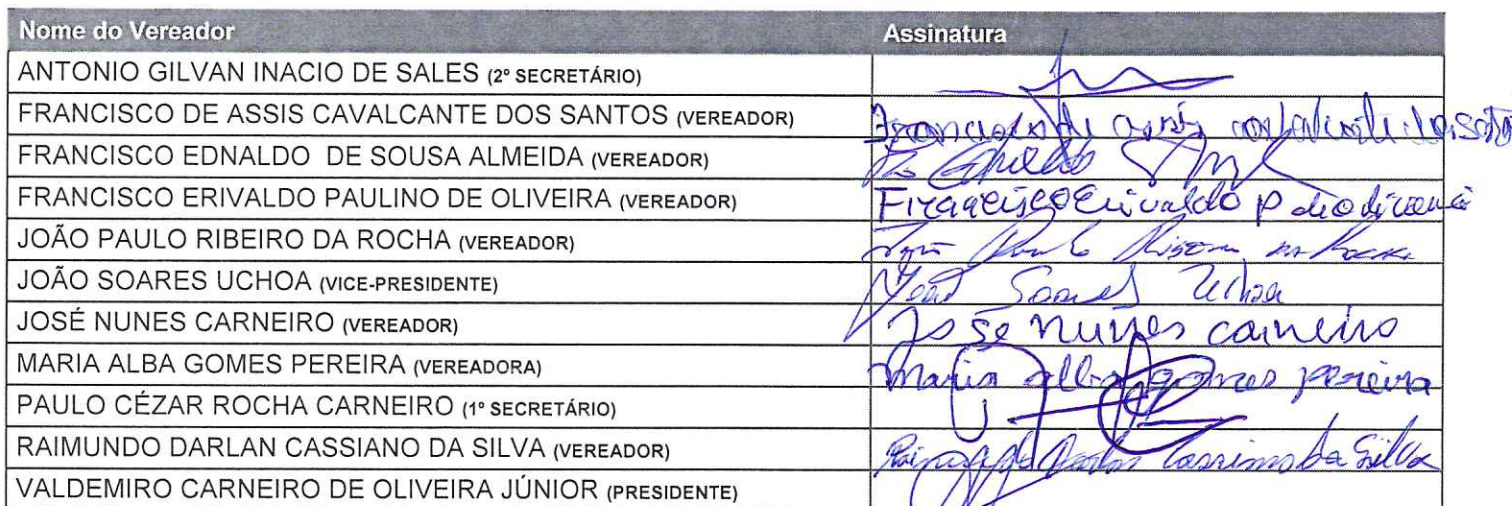 Nome do Vereador Assinatura
ANTONIO GILVAN INACIO DE SALES (2º SECRETÁRIO)
FRANCISCO DE ASSIS CAVALCANTE DOS SANTOS (VEREADOR) Francisco de assis
FRANCISCO EDNALDO DE SOUSA ALMEIDA (VEREADOR)
FRANCISCO ERIVALDO PAULINO DE OLIVEIRA (VEREADOR) Francisco Erivaldo P de oliveira
JOÃO PAULO RIBEIRO DA ROCHA (VEREADOR) João Paulo Ribeiro da Rocha
JOÃO SOARES UCHOA (VICE-PRESIDENTE) João Soares Uchoa
JOSÉ NUNES CARNEIRO (VEREADOR) José nunes carneiro
MARIA ALBA GOMES PEREIRA (VEREADORA) maria alba gomes pereira
PAULO CÉZAR ROCHA CARNEIRO (1º SECRETÁRIO)
RAIMUNDO DARLAN CASSIANO DA SILVA (VEREADOR) Raimundo Darlan Cassiano da Silva
VALDEMIRO CARNEIRO DE OLIVEIRA JÚNIOR (PRESIDENTE)